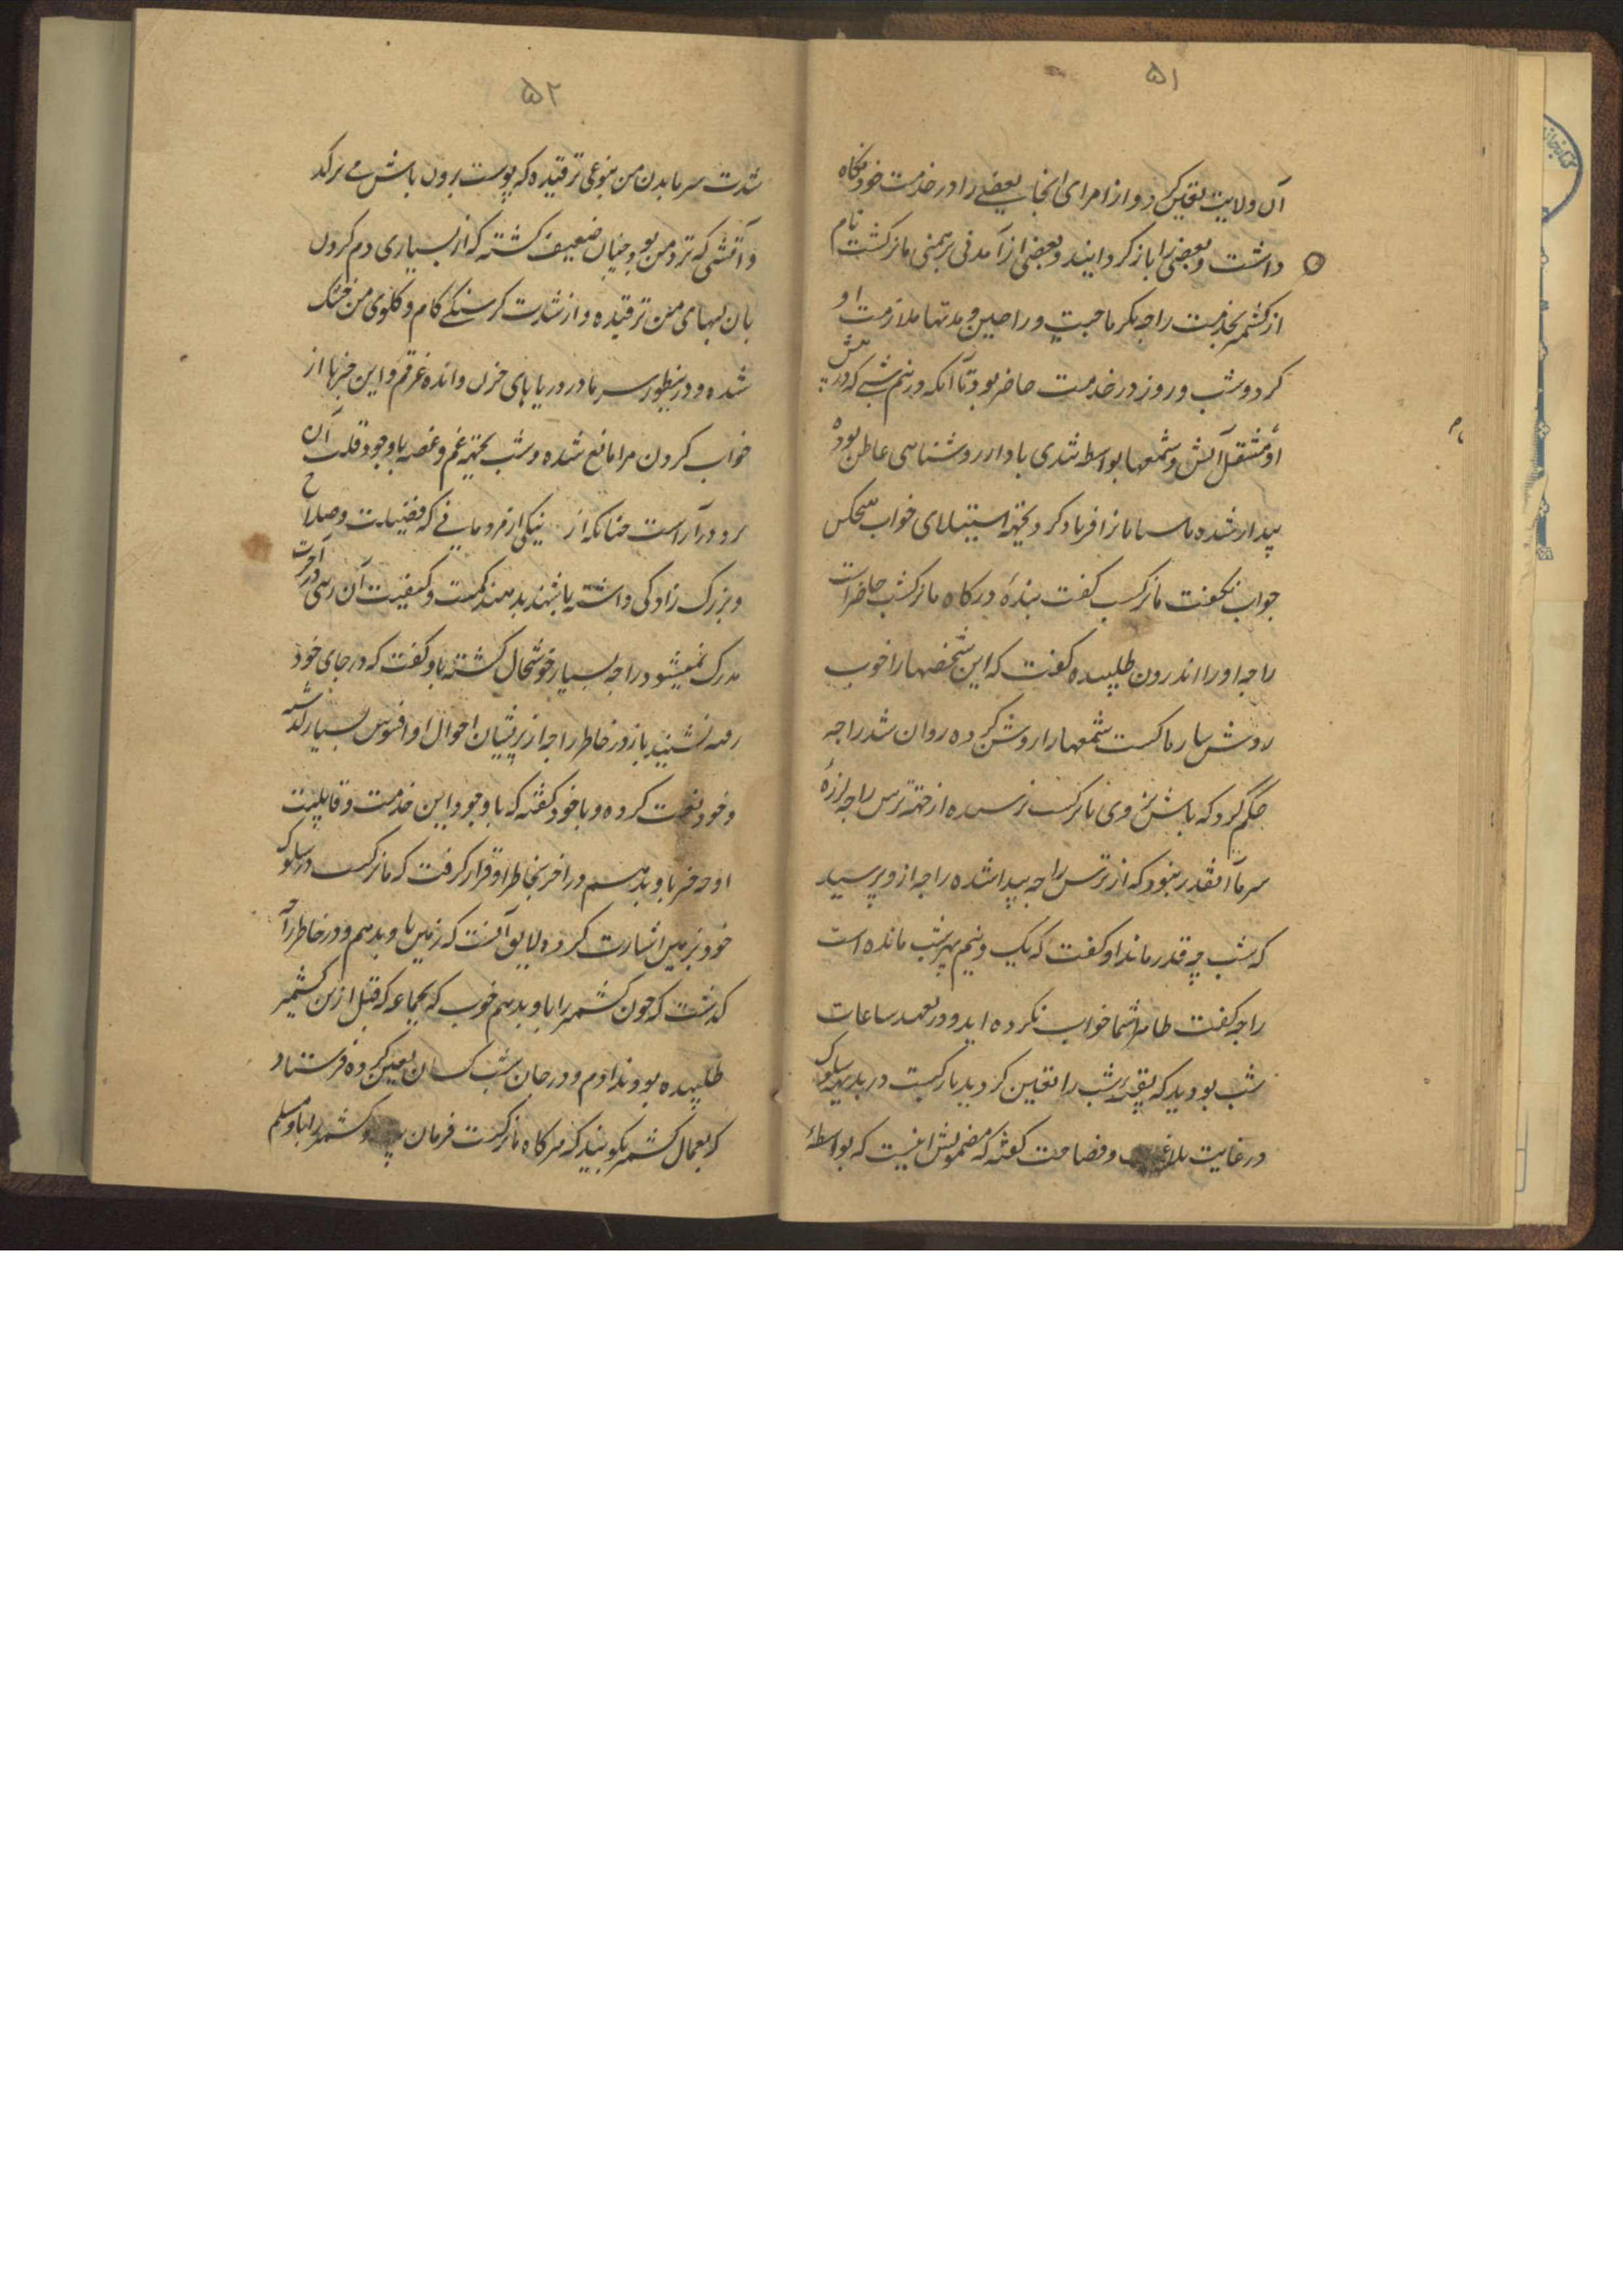 ۵۱
آن ولایت تعین کرد و از امرای انجا بعضے را در خدمت خود نگاه
داشت و بعضی را باز کردانیند و بعضی از آمدنی برهمنی ماترکشت نام
از کشمیر بخدمت راجه بکرماجیت و راجین و مدتها ملازمت او
کرد و شب و روز در خدمت حاضر بود تا آنکه در نیم شبے که در پیش
او منقل آتش و شمعها بواسطه تندی باد از روشناهی عاطل بوده
بیدار شده پاسبانانرا فریاد کرد بجهة استیلای خواب هیچکس
جواب نکفت ماترکت کفت بندهٔ درکاه ماترکشت حاضر است
راجه او را اندرون طلبیده کفت که این شخصها را خوب
روشن ساز ماترکت شمعها را روشن کرده روان شد راجه
حکم کرد که باش نخوی ماترکت ترسیده از جهة ترس راجه لرزهٔ
سرما آنقدر نبود که از ترس راجه پیدا شده راجه ازو پرسید
که شب چه قدر ماند او کفت که یک و نیم پهر شب مانده است
راجه کفت ظاهرا شما خواب نکرده اید و در تعهد ساعات
شب بودید که بقیه شب را تعین کردید مارکت در بدیهه سلوک
در غایت بلاغت و فصاحت کفته که مضمونش اینست که بواسطهٔ
۵۲
شدت سرما بدن من بنوعی ترقیده که پوست برون باش مے ترکد
و آتشی که نزد من بود چنان ضعیف کشته که از بسیاری دم کردن
بان لبهای من ترقیده و از شدت کرسنکے کام و کلوی من خشک
شده و درینطور سرما در دریاهای حزن و انده غرقم و این خبرها از
خواب کردن مرا مانع شده و شب بجهة غم و غصه باوجود قلت آن
رو در آر است چنانکه از نیکی از فرومایی که فضیلت و صلاح
و بزرک زادکی داشته باشند بدهند کمیت و کیفیت آن رهی در آخرت
مدرک نمیشود راجه بسیار خوشحال کشته باو کفت که در جای خود
رفته نشیند باز در خاطر راجه از پریشان احوال او افسوس بسیار کذشته
و خود نعت کرده و با خود کفته که باوجود این خدمت و قابلیت
او چه خبر باو بدهم در اخر بخاطر او قرار کرفت که ماترکت در سلوک
خود بزمین اشارت کرده لایق آنست که زمین باو بدهم و در خاطر راجه
کذشت که چون کشمیر را باو بدهم خوب که بجماعه که قبل ازین کشمیر
طلبیده بودند ندادم و در همان شب کسان تعین کرده فرستاد
که بعمال کشمیر بکویند که هرکاه ماترکت فرمان و کشمیر را باو مسلم